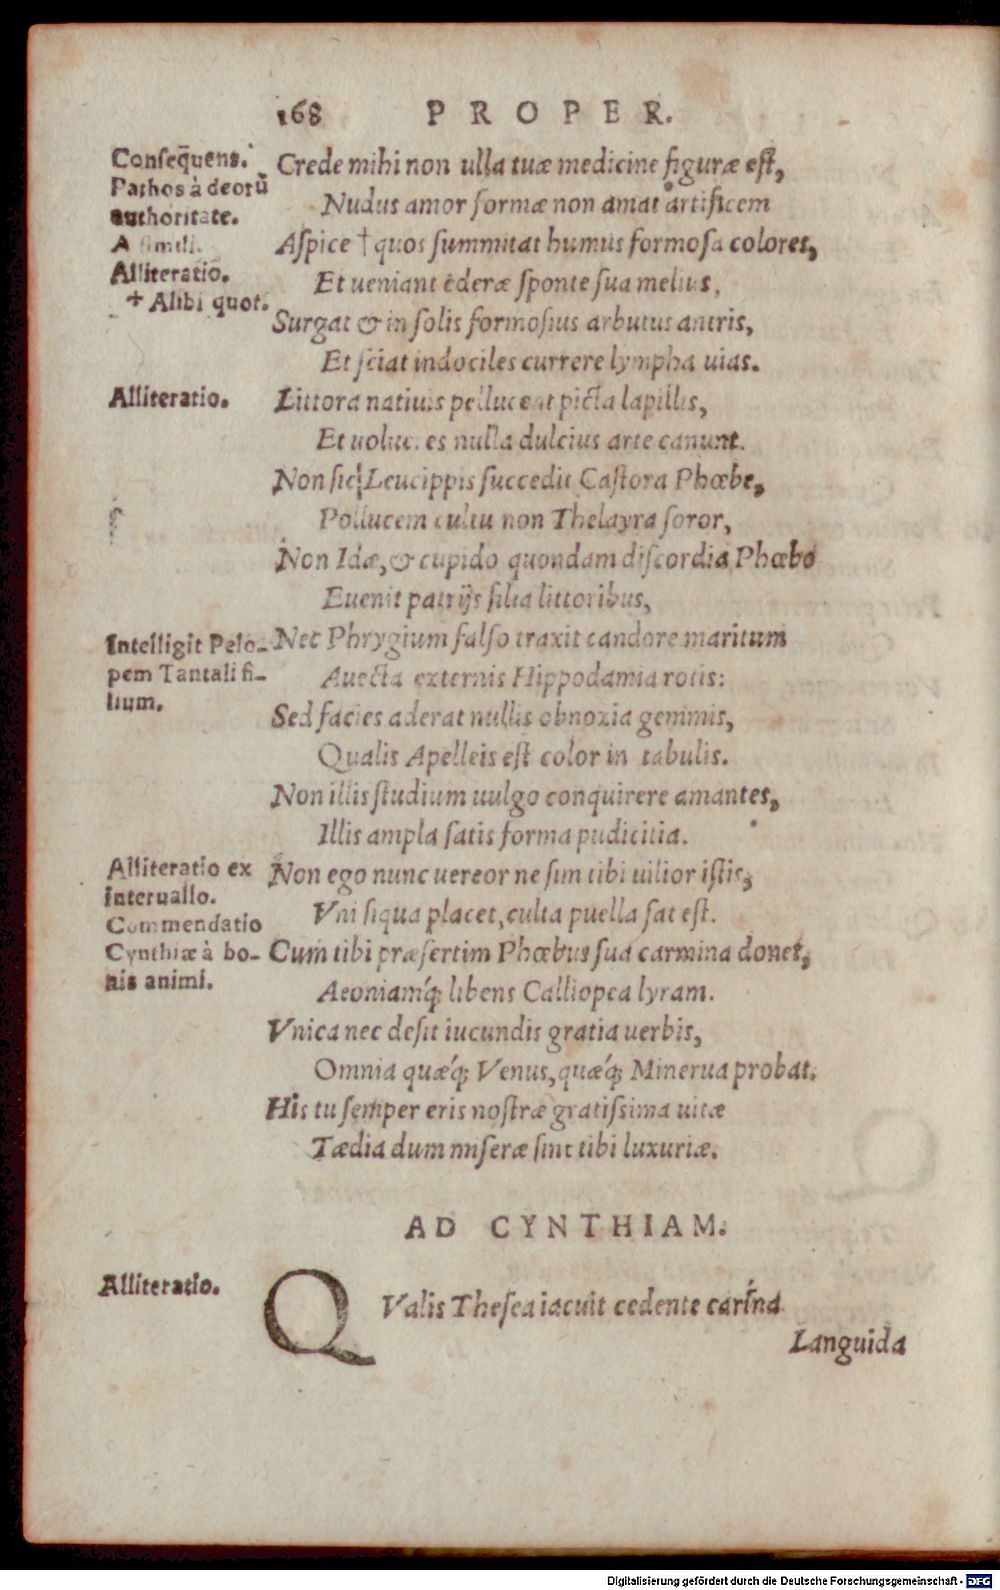 168 PROPER.
Conseq̃uens.
Pathos à deorũ
authoritate.
A simili.
Alliteratio.
+ Alibi quot.
Crede mihi non ulla tuæ medicine figuræ est,
Nudus amor formæ non amat artificem
Aspice † quos summitat humus formosa colores,
Et ueniant ederæ sponte sua melius,
Surgat & in solis formosius arbutus antris,
Et sciat indociles currere lympha uias.
Alliteratio.
Littora natiuis pelluceat picta lapillis,
Et uolucres nulla dulcius arte canunt.
Non sic Leucippis succedit Castora Phœbe,
Pollucem cultu non Thelayra soror,
Non Idæ, & cupido quondam discordia Phœbo
Euenit patrijs filia littoribus,
Intelligit Pelo-
pem Tantali fi-
lium.
Nec Phrygium falso traxit candore maritum
Auecta externis Hippodamia rotis:
Sed facies aderat nullis obnoxia gemmis,
Qualis Apelleis est color in tabulis.
Non illis studium uulgo conquirere amantes,
Illis ampla satis forma pudicitia.
Alliteratio ex
interuallo.
Commendatio
Cynthiæ à bo-
nis animi.
Non ego nunc uereor ne sim tibi uilior istis,
Vni siqua placet, culta puella sat est.
Cum tibi præsertim Phœbus sua carmina donet,
Aeoniamq́; libens Calliopea lyram.
Vnica nec desit iucundis gratia uerbis,
Omnia quæq́; Venus, quæq́; Minerua probat.
His tu semper eris nostræ gratissima uitæ
Tædia dum miseræ sint tibi luxuriæ.
AD CYNTHIAM.
Alliteratio.
QValis Thesea iacuit cedente carina
Languida
Digitalisierung gefördert durch die Deutsche Forschungsgemeinschaft - DFG